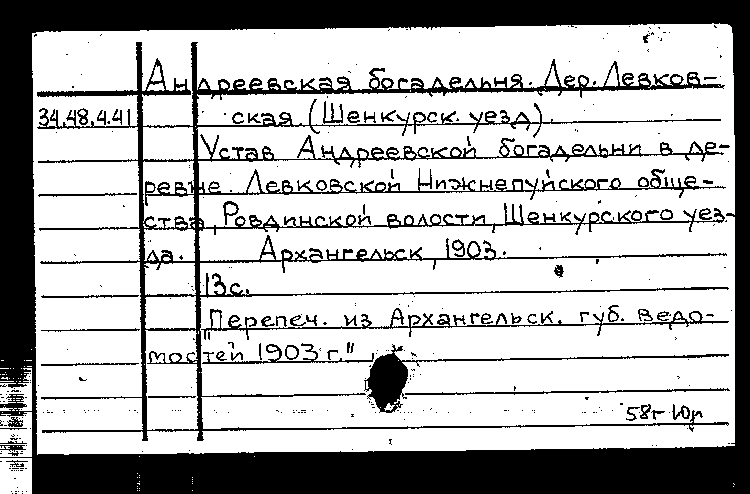 Андреевская богадельня. Дер. Левков-
34.48.4.41 ская (Шенкурск. уезд).
Устав Андреевской богадельни в де-
ревне Левковской Нижнепуйского обще-
ства, Ровдинской волости, Шенкурского уез-
да. Архангельск, 1903.
13с.
"Перепеч. из Архангельск. губ. ведо-
мостей 1903 г."
58г